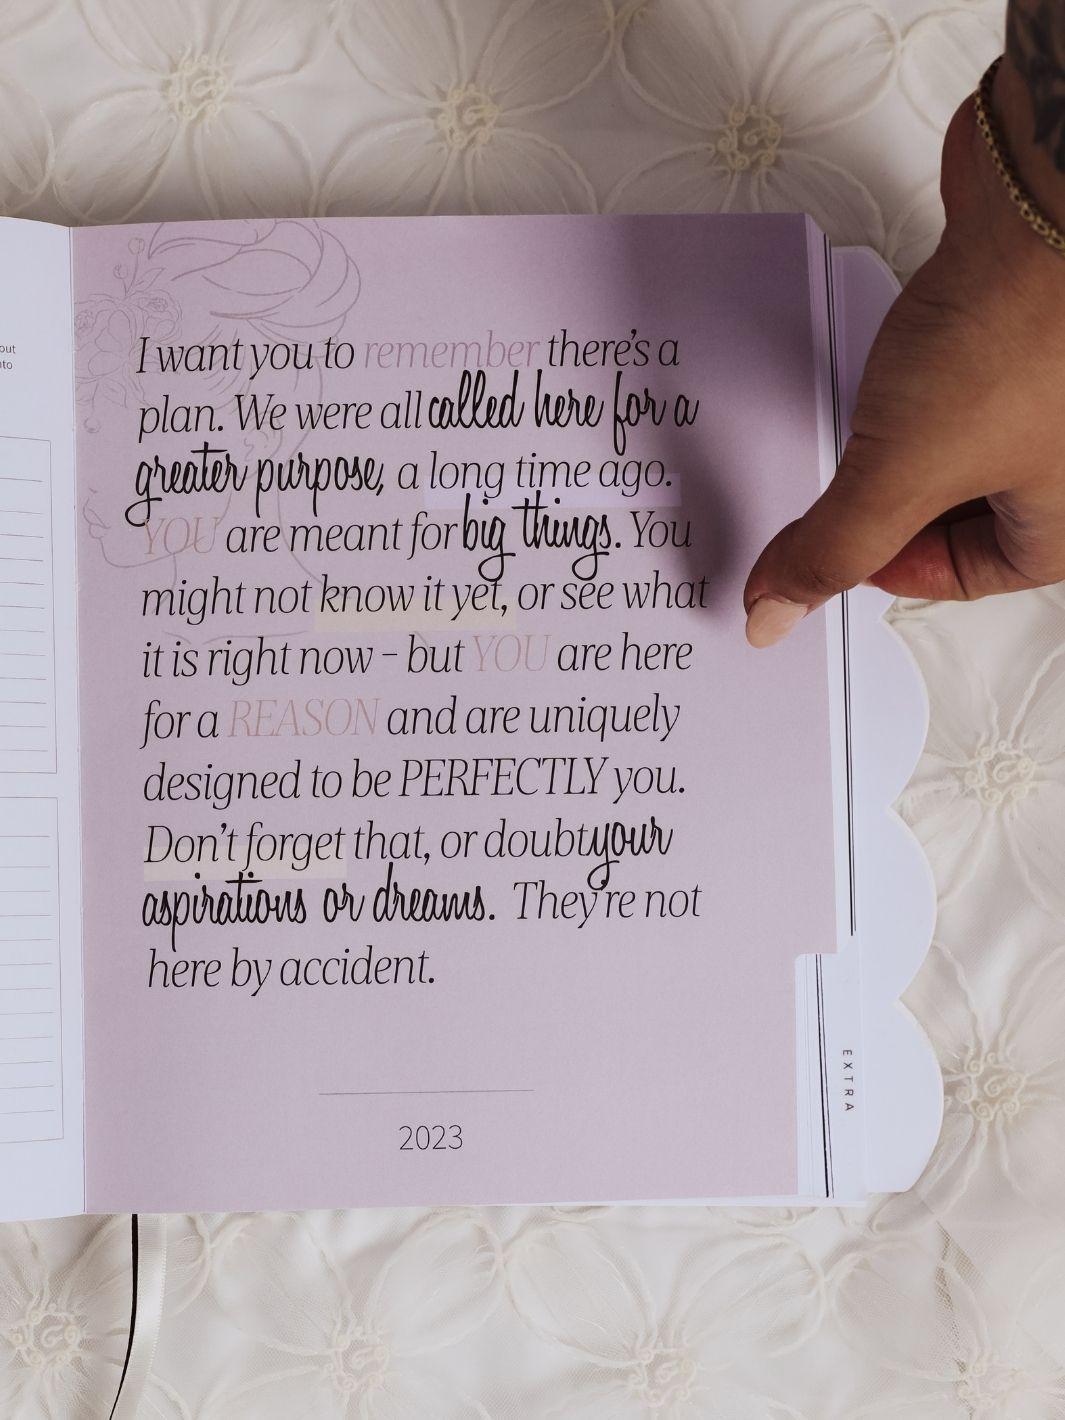 out
nto
I want you to remember there's a
plan. We were all called here for a
greater purpose, a long time ago.
YOU are meant for big things. You
might not know it yet, or see what
it is right now – but YOU are here
for a REASON and are uniquely
designed to be PERFECTLY you.
Don't forget that, or doubt your
aspirations or dreams. They're not
here by accident.
2023
EXTRA